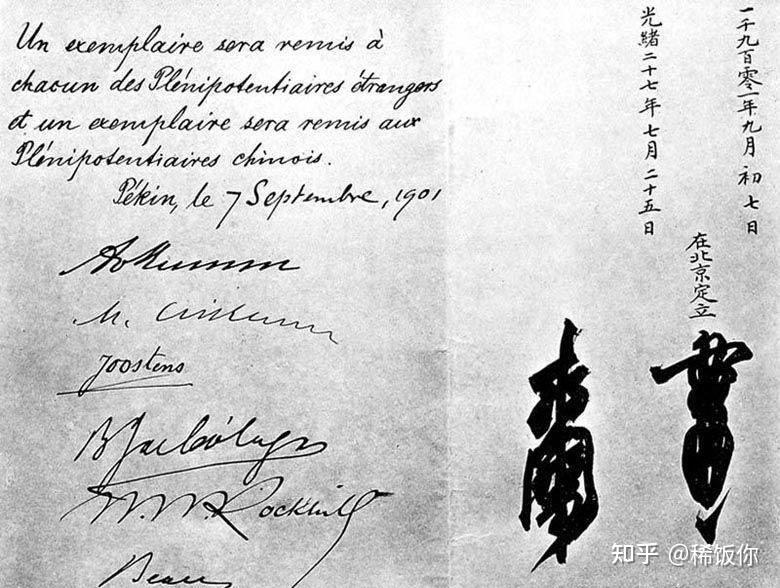 Un exemplaire sera remis à
chacun des Plénipotentiaires étrangers
et un exemplaire sera remis aux
Plénipotentiaires chinois.
Pékin, le 7 Septembre, 1901
Joostens
W. W. Rockhill
Beau
一千九百零一年九月初七日
光緒二十七年七月二十五日
在北京定立
知乎 @稀饭你